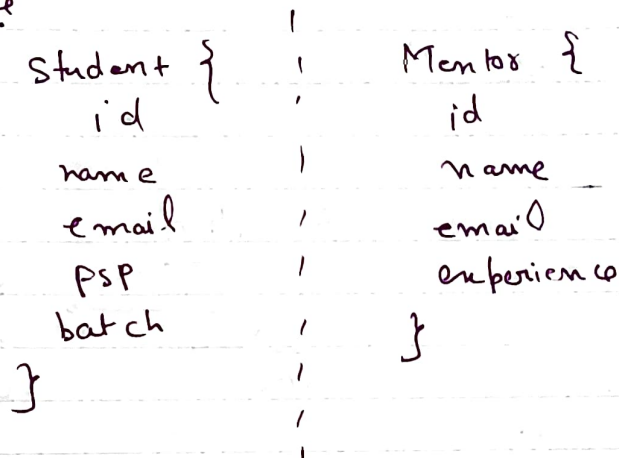 Student {
id
name
email
psp
batch
}
Mentor {
id
name
email
experience
}